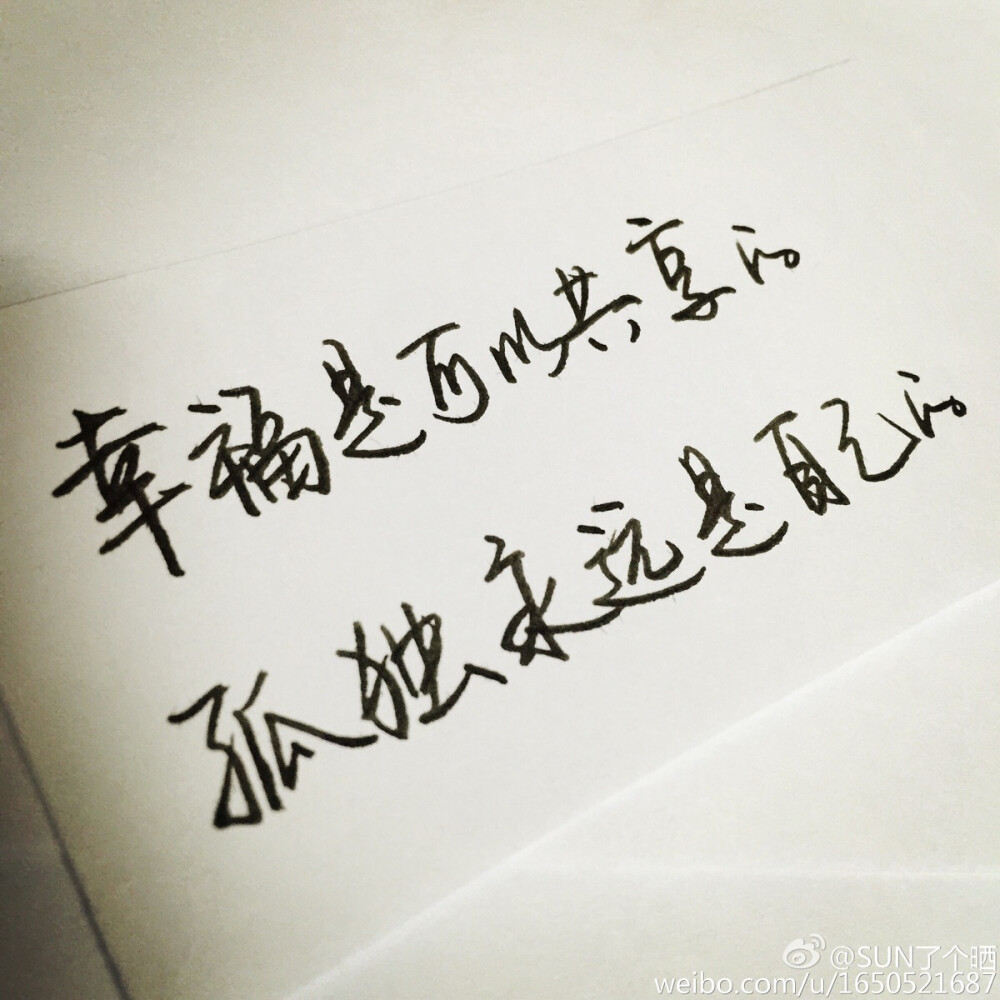 幸福是可以共享的
孤独永远是自己的
@SUN了个晒
weibo.com/u/1650521687